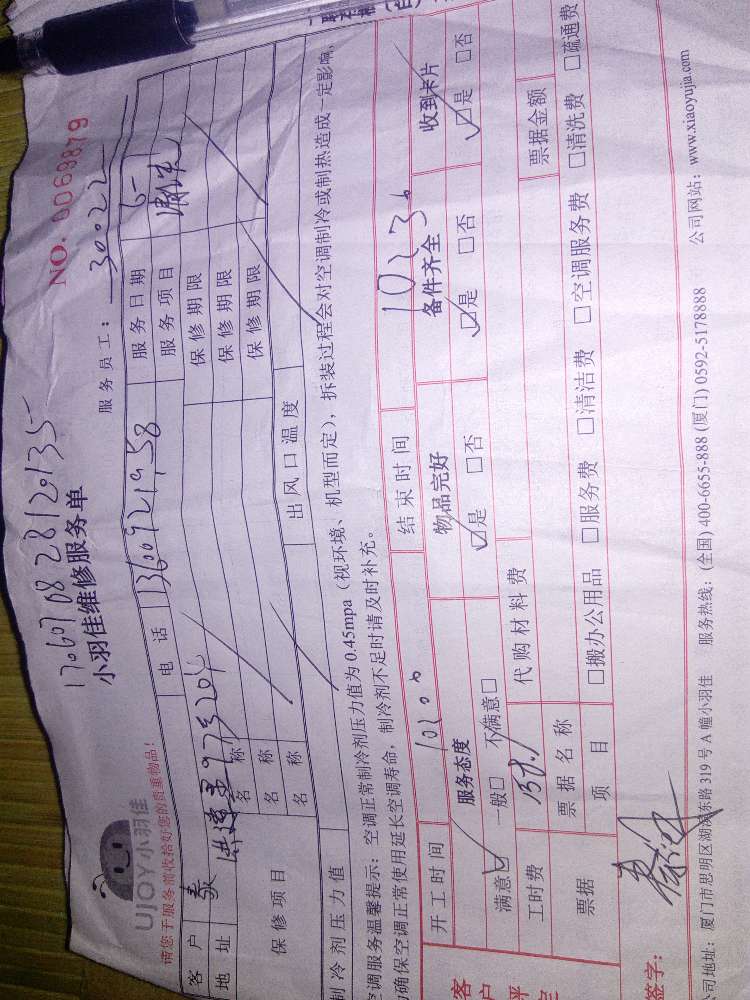 NO. 0068879
1706070828120135
小羽佳维修服务单
UJOY小羽佳
请您于服务前收拾好您的贵重物品!
服务员工: 30022
客户 秦 电话 13600921958 服务日期 6-
地址 97号204 服务项目 清洗
保修项目 名称 保修期限
名称 保修期限
名称 保修期限
制冷剂压力值 出风口温度
空调服务温馨提示: 空调正常制冷剂压力值为 0.45mpa(视环境、机型而定), 拆装过程会对空调制冷或制热造成一定影响,
为确保空调正常使用延长空调寿命, 制冷剂不足时请及时补充。
开工时间 1020 结束时间 1023
客户评定 服务态度 物品完好 备件齐全 收到卡片
满意☑ 一般□ 不满意□ ☑是 □否 ☑是 □否 ☑是 □否
工时费 158 代购材料费
票据 票据名称 票据金额
项目 □搬办公用品 □服务费 □清洁费 □空调服务费 □清洗费 □疏通费
签字:
公司地址: 厦门市思明区湖滨东路 319 号 A 幢小羽佳 服务热线: (全国) 400-6655-888 (厦门) 0592-5178888 公司网站: www.xiaoyujia.com